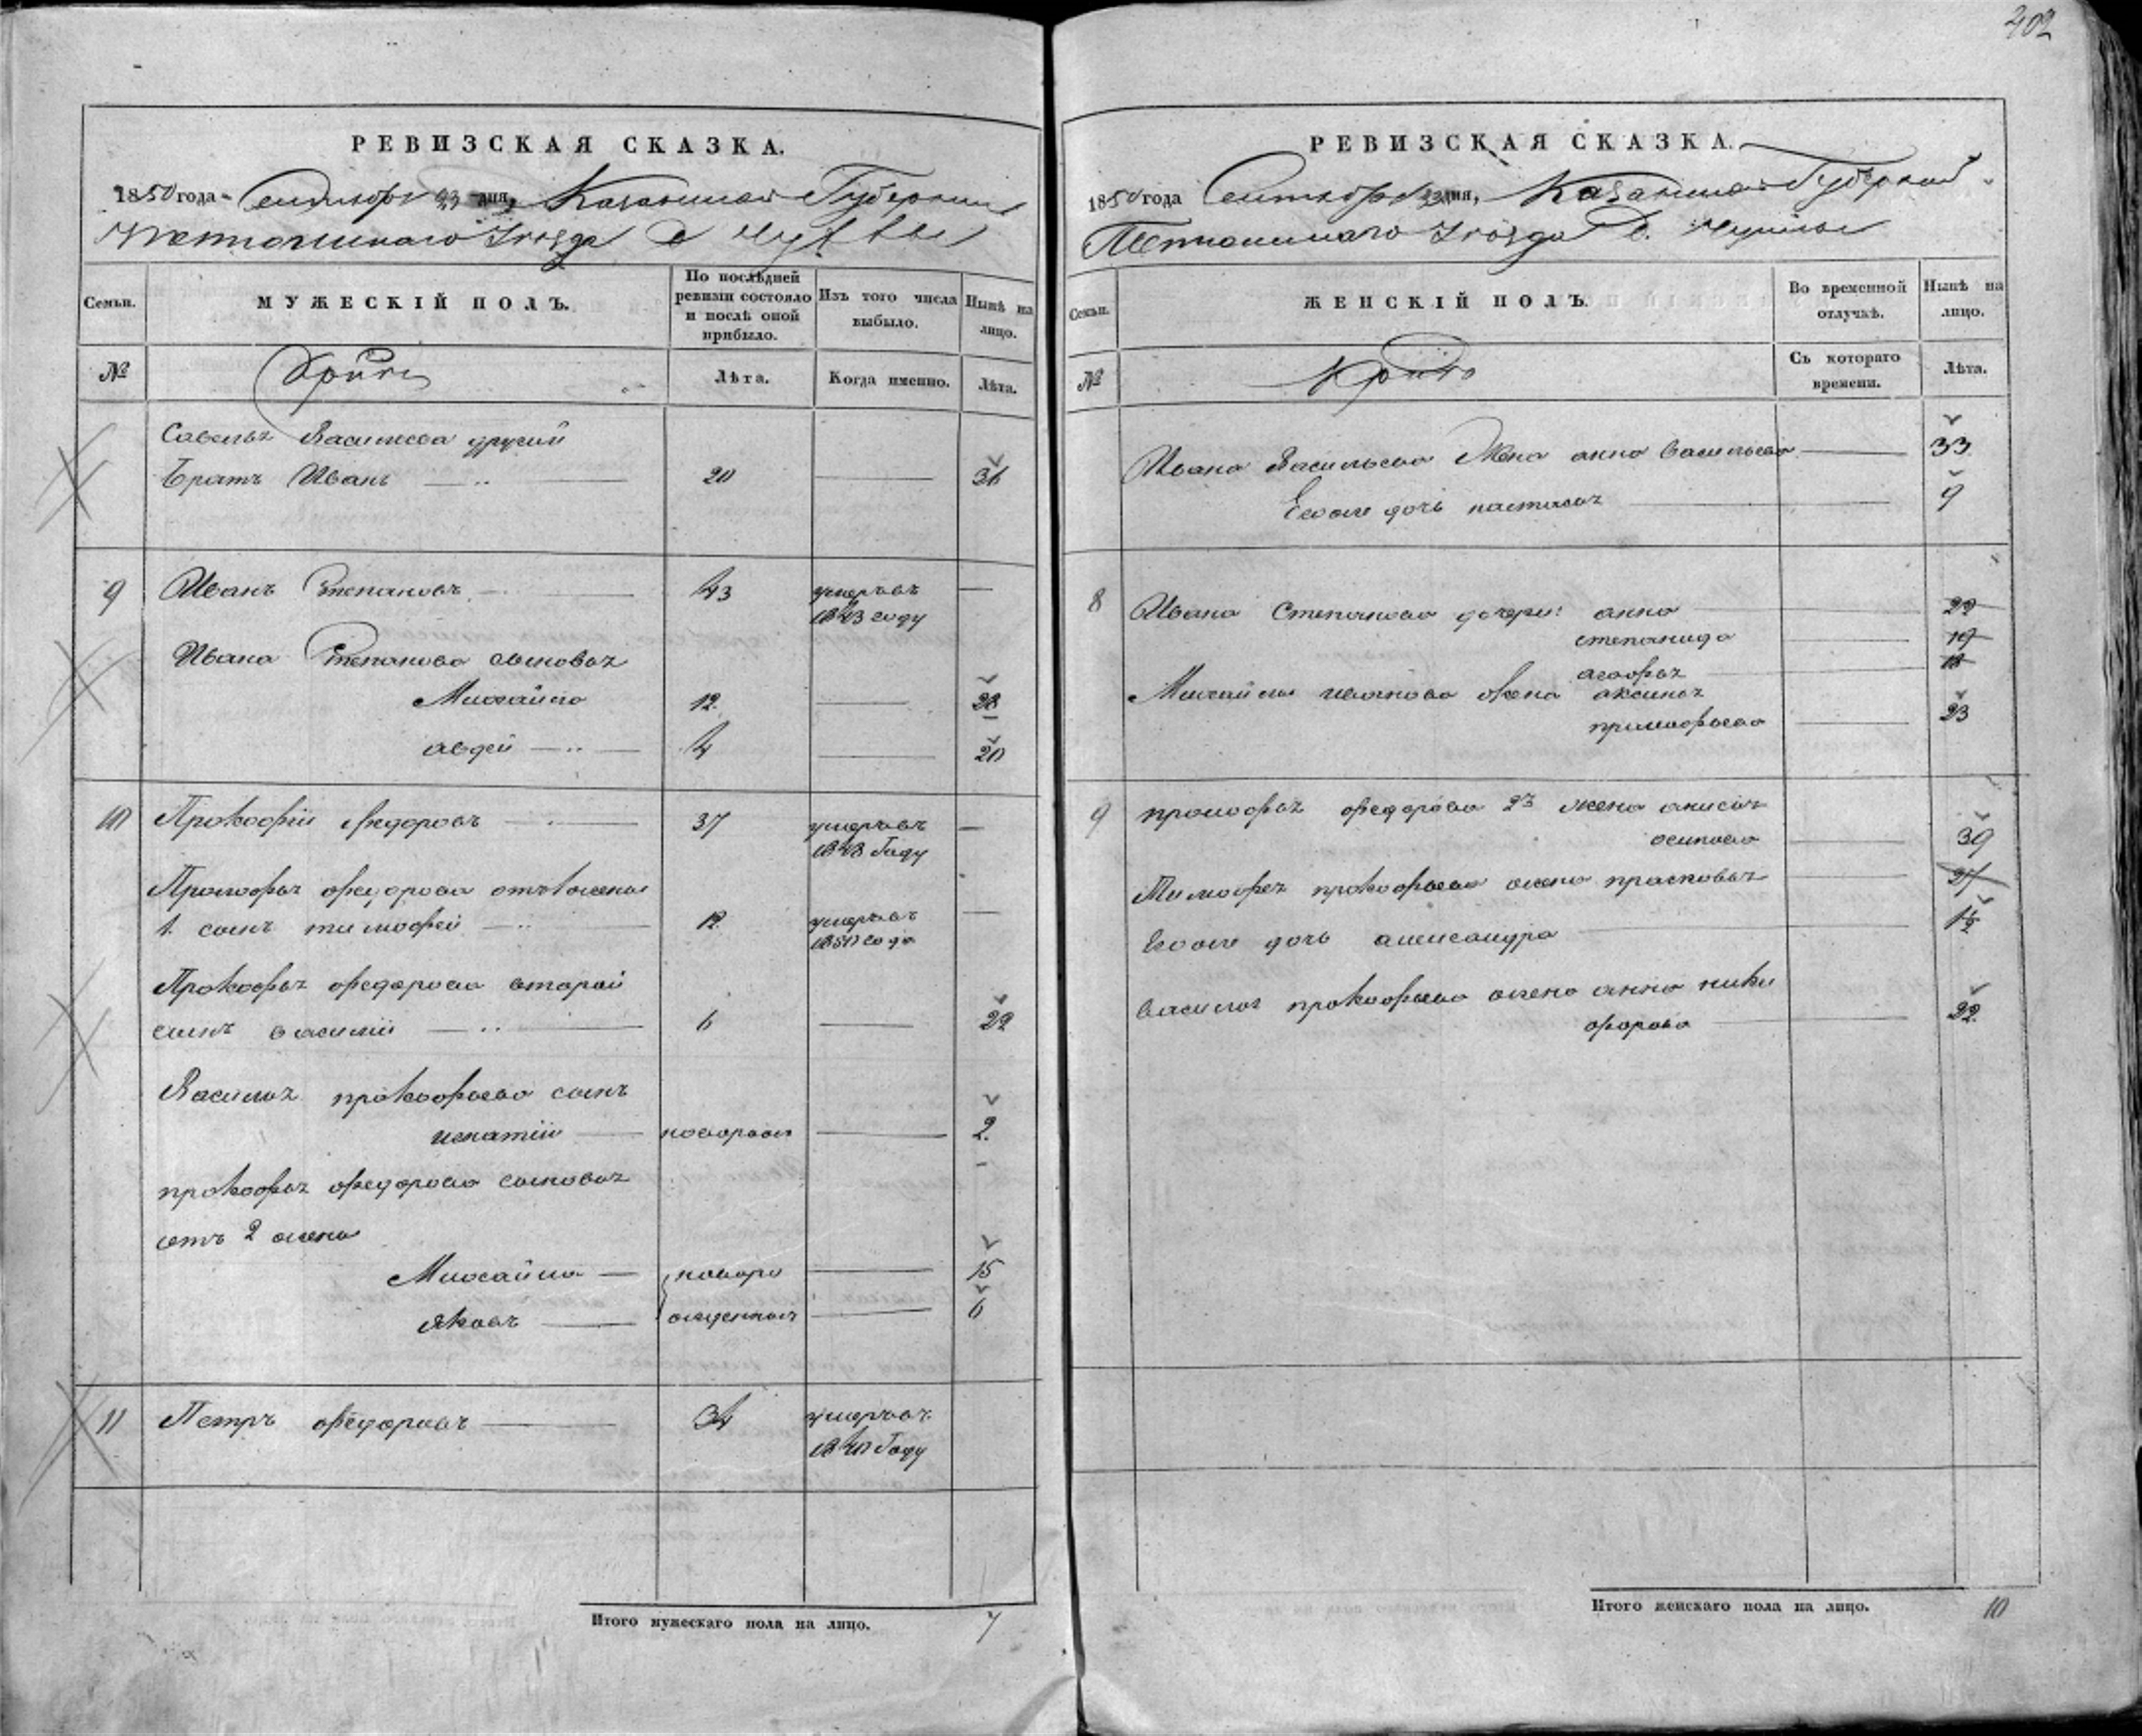 402
РЕВИЗСКАЯ СКАЗКА.
1850 года Сентября 23 дня, Казанской Губернии
Уезда
Семьи.
МУЖЕСКІЙ ПОЛЪ.
По послѣдней ревизіи состояло и послѣ оной прибыло.
Изъ того числа выбыло.
Нынѣ на лицо.
№
Лѣта.
Когда именно.
Лѣта.
Савелья Васильева другий
братъ Иванъ 20 31
9 Иванъ Степановъ 43 умеръ въ
1843 году
Ивана Степанова сыновья
Михайло 12. 28
авдей 4 20
10 Прокофій федоровъ 37 умеръ въ
1848 Году
Прокофья федорова отъ 1 жены
1. сынъ тимофей 12. умеръ въ
1850 года
Прокофья федорова второй
сынъ василій 6 22
Василья прокофьева сынъ
игнатій новорож 2.
прокофья федорова сыновья
отъ 2 жены
Михайло новоро 15
яковъ жденныя 6
11 Петръ федоровъ 34 умеръ въ
1840 Году
Итого мужескаго пола на лицо. 7
РЕВИЗСКАЯ СКАЗКА.
1850 года Сентября 23 дня, Казанской Губерній
Уезда Д.
Семьи.
ЖЕНСКІЙ ПОЛЪ.
Во временной отлучкѣ.
Нынѣ на лицо.
№
Съ котораго времени.
Лѣта.
Ивана Васильева Жена анна васильева 33
Евоже дочь настасья 9
8 Ивана Степанова дочери: анна 22
степанида 19
агафья 18
Михайлы иванова жена аксинья
прокофьева 23
9 прокофья федорова 2я жена анисья
осипова 39
Тимофея прокофьева жена прасковья 27
Евоже дочь александра 1½
василья прокофьева жена анна ники
форова 22.
Итого женскаго пола на лицо. 10